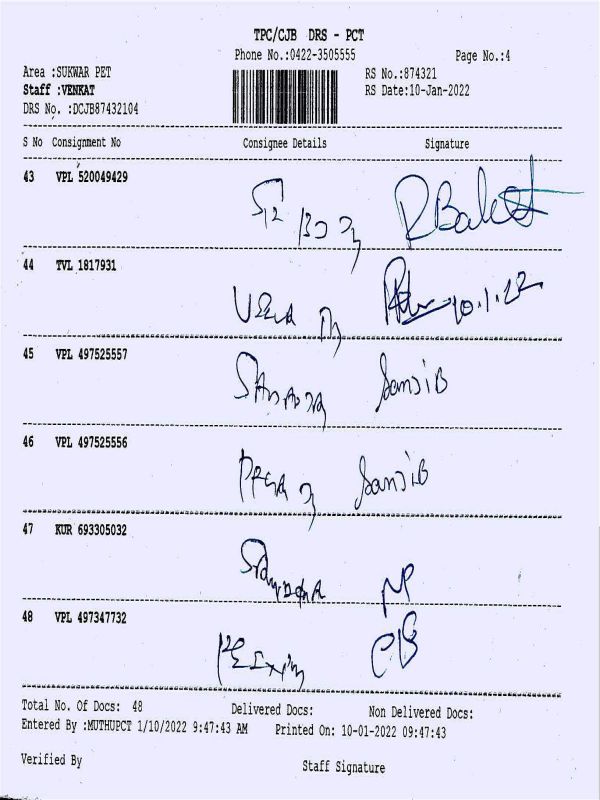 TPC/CJB DRS - PCT
Phone No.:0422-3505555 Page No.:4
Area :SUKWAR PET RS No.:874321
Staff :VENKAT RS Date:10-Jan-2022
DRS No. :DCJB87432104
S No Consignment No Consignee Details Signature
43 VPL 520049429
44 TVL 1817931
10.1.22
45 VPL 497525557
SanjiB
46 VPL 497525556
SanjiB
47 KUR 693305032
48 VPL 497347732
Total No. Of Docs: 48 Delivered Docs: Non Delivered Docs:
Entered By :MUTHUPCT 1/10/2022 9:47:43 AM Printed On: 10-01-2022 09:47:43
Verified By Staff Signature